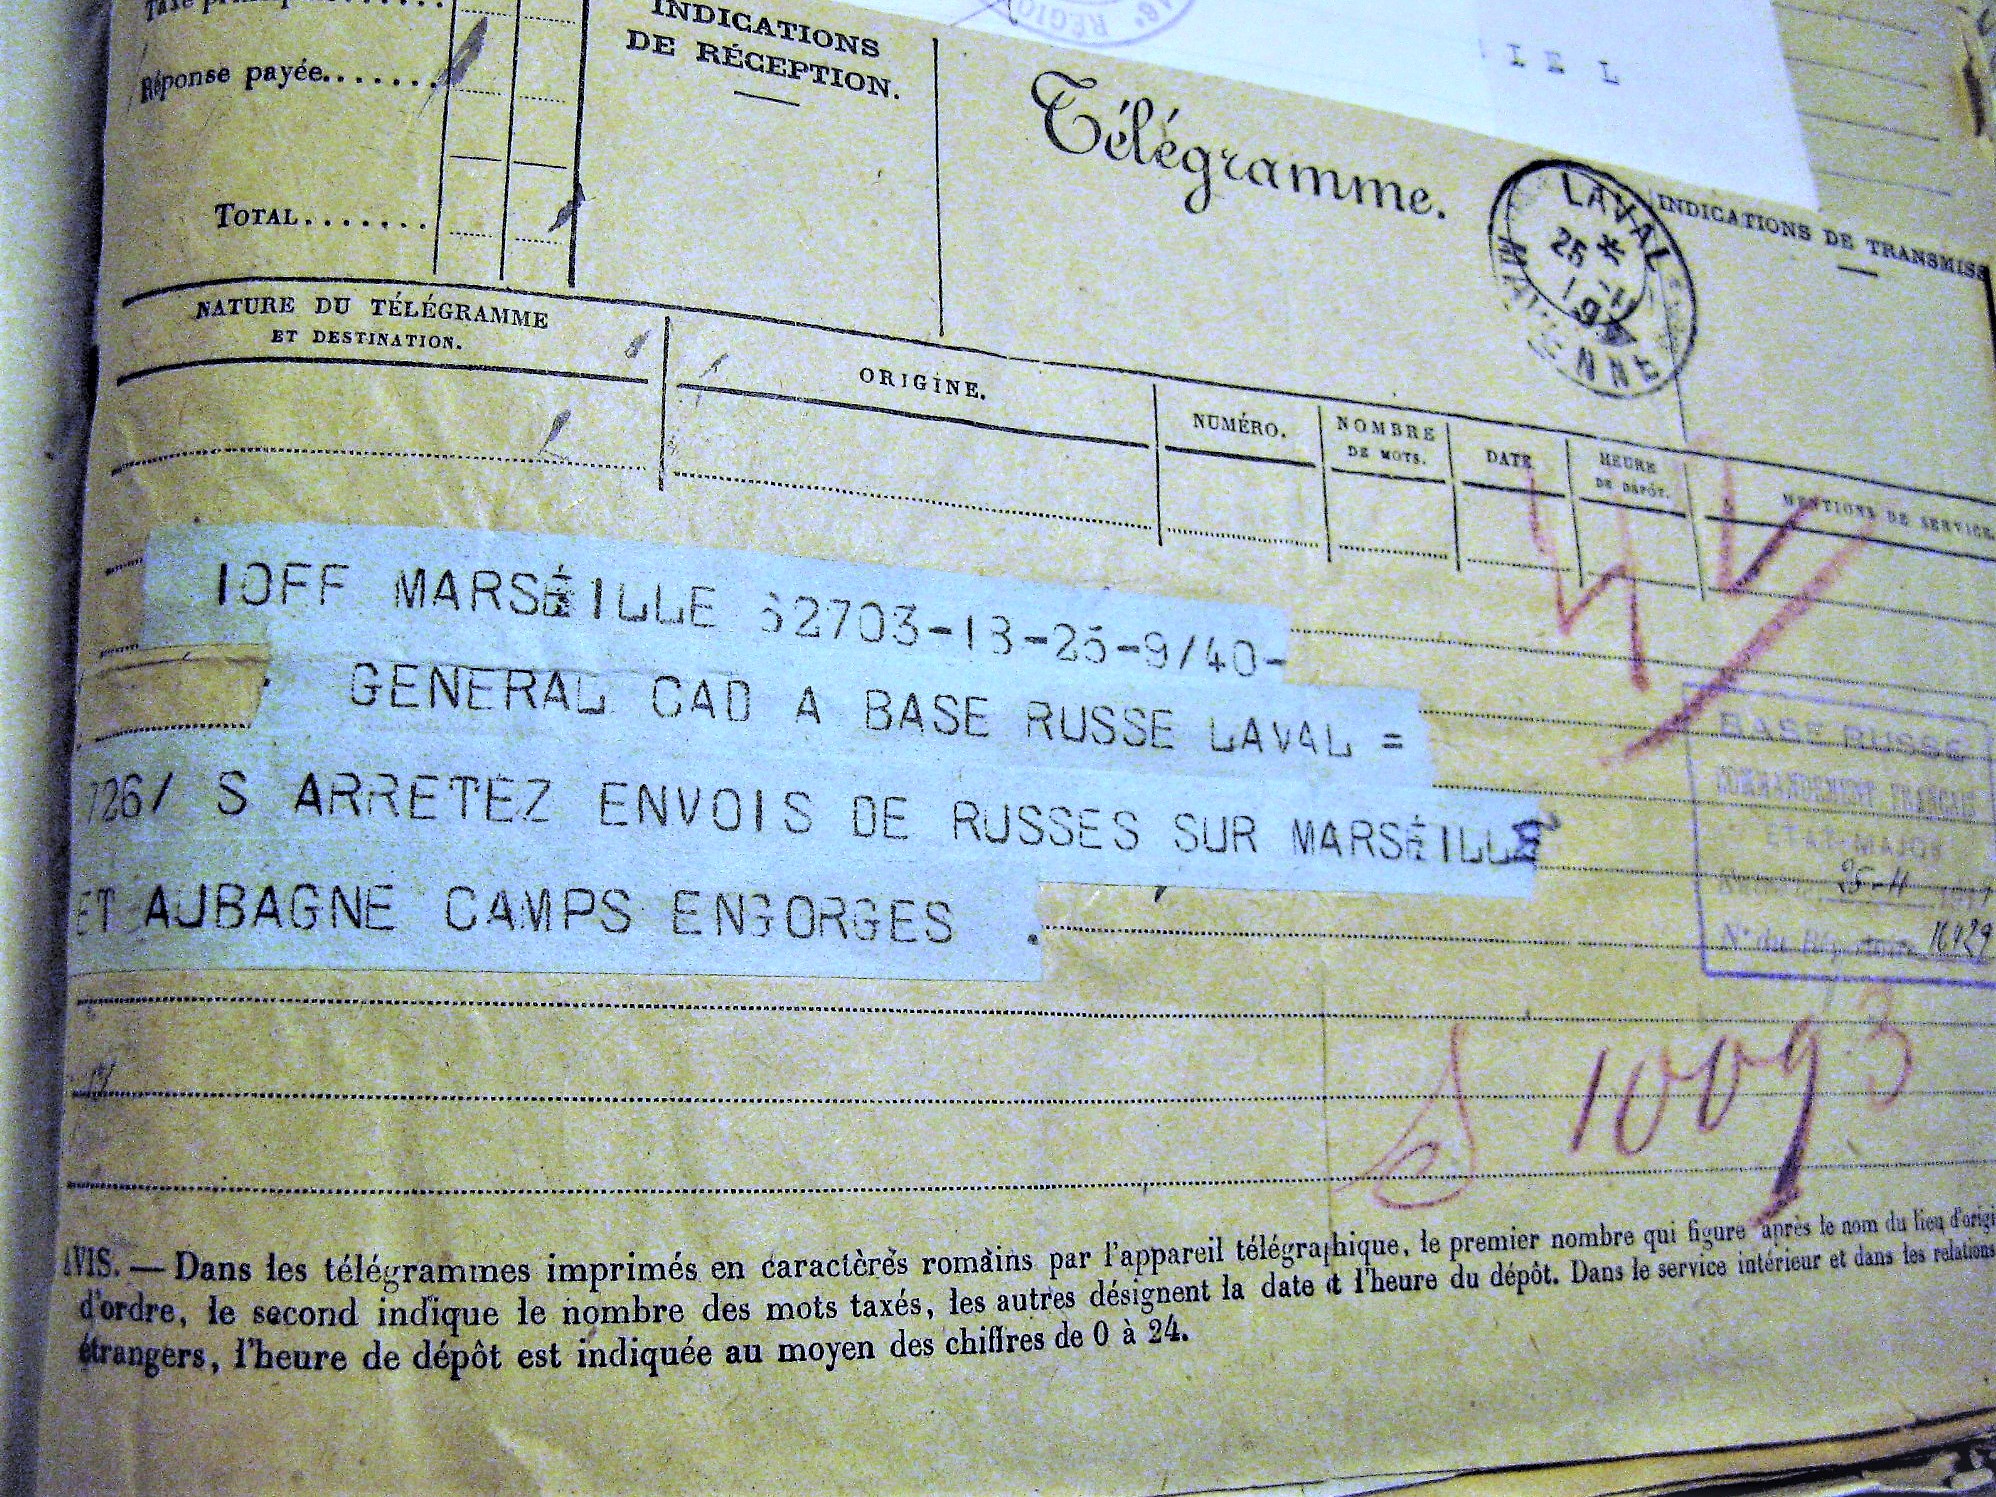 INDICATIONS
DE RÉCEPTION.
Réponse payée.......
TOTAL.......
Télégramme.
IEL
RÉGION
LAVAL
25 -11
MAYENNE
INDICATIONS DE TRANSMISS
NATURE DU TÉLÉGRAMME
ET DESTINATION.
ORIGINE.
NUMÉRO.
NOMBRE
DE MOTS.
DATE
HEURE
DE DÉPÔT.
MENTIONS DE SERVICE.
IOFF MARSEILLE 62703-13-25-9/40-
GENERAL CAD A BASE RUSSE LAVAL =
726/ S ARRETEZ ENVOIS DE RUSSES SUR MARSEILLE
ET AUBAGNE CAMPS ENGORGES .
BASE RUSSE
COMMANDEMENT FRANÇAIS
ETAT-MAJOR
25-11
16429
S 10093
AVIS. — Dans les télégrammes imprimés en caractères romains par l'appareil télégraphique, le premier nombre qui figure après le nom du lieu d'origi
d'ordre, le second indique le nombre des mots taxés, les autres désignent la date et l'heure du dépôt. Dans le service intérieur et dans les relations
étrangers, l'heure de dépôt est indiquée au moyen des chiffres de 0 à 24.